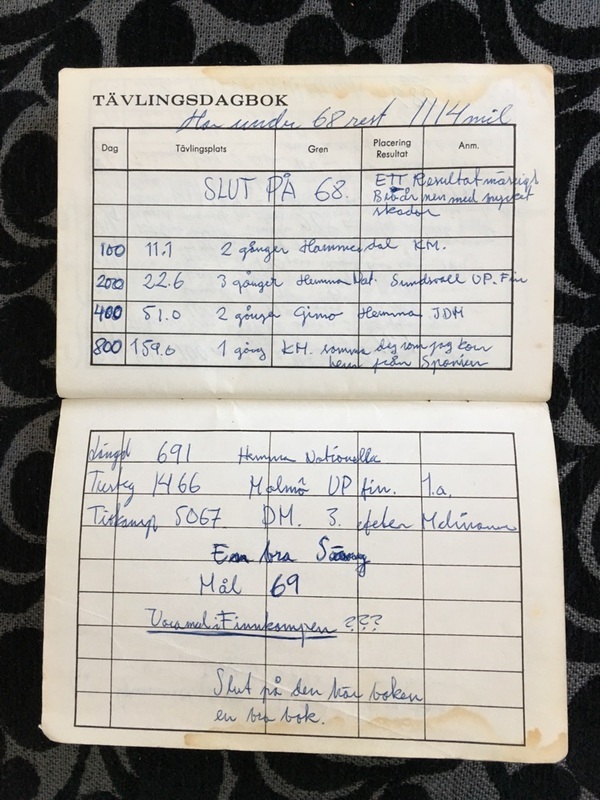 TÄVLINGSDAGBOK
Har under 68 rest 1114 mil
Dag Tävlingsplats Gren Placering Resultat Anm.
SLUT PÅ 68. ETT Resultatmässigt
Bra år men med mycket
skador
100 11.1 2 gånger Hammerdal KM.
200 22.6 3 gånger Hemma Nat. Sundsvall UP. Fin
400 51.0 2 gånger Gimo Hemma JDM
800 159.0 1 gång KM. samma dag som jag kom
hem från Spanien
Längd 691 Hemma Nationella
Tresteg 1466 Malmö UP fin. 1.a.
Tiokamp 5067. DM. 3. efter
En bra Säsong
Mål 69
Vara med i Finnkampen ???
Slut på den här boken
en bra bok.